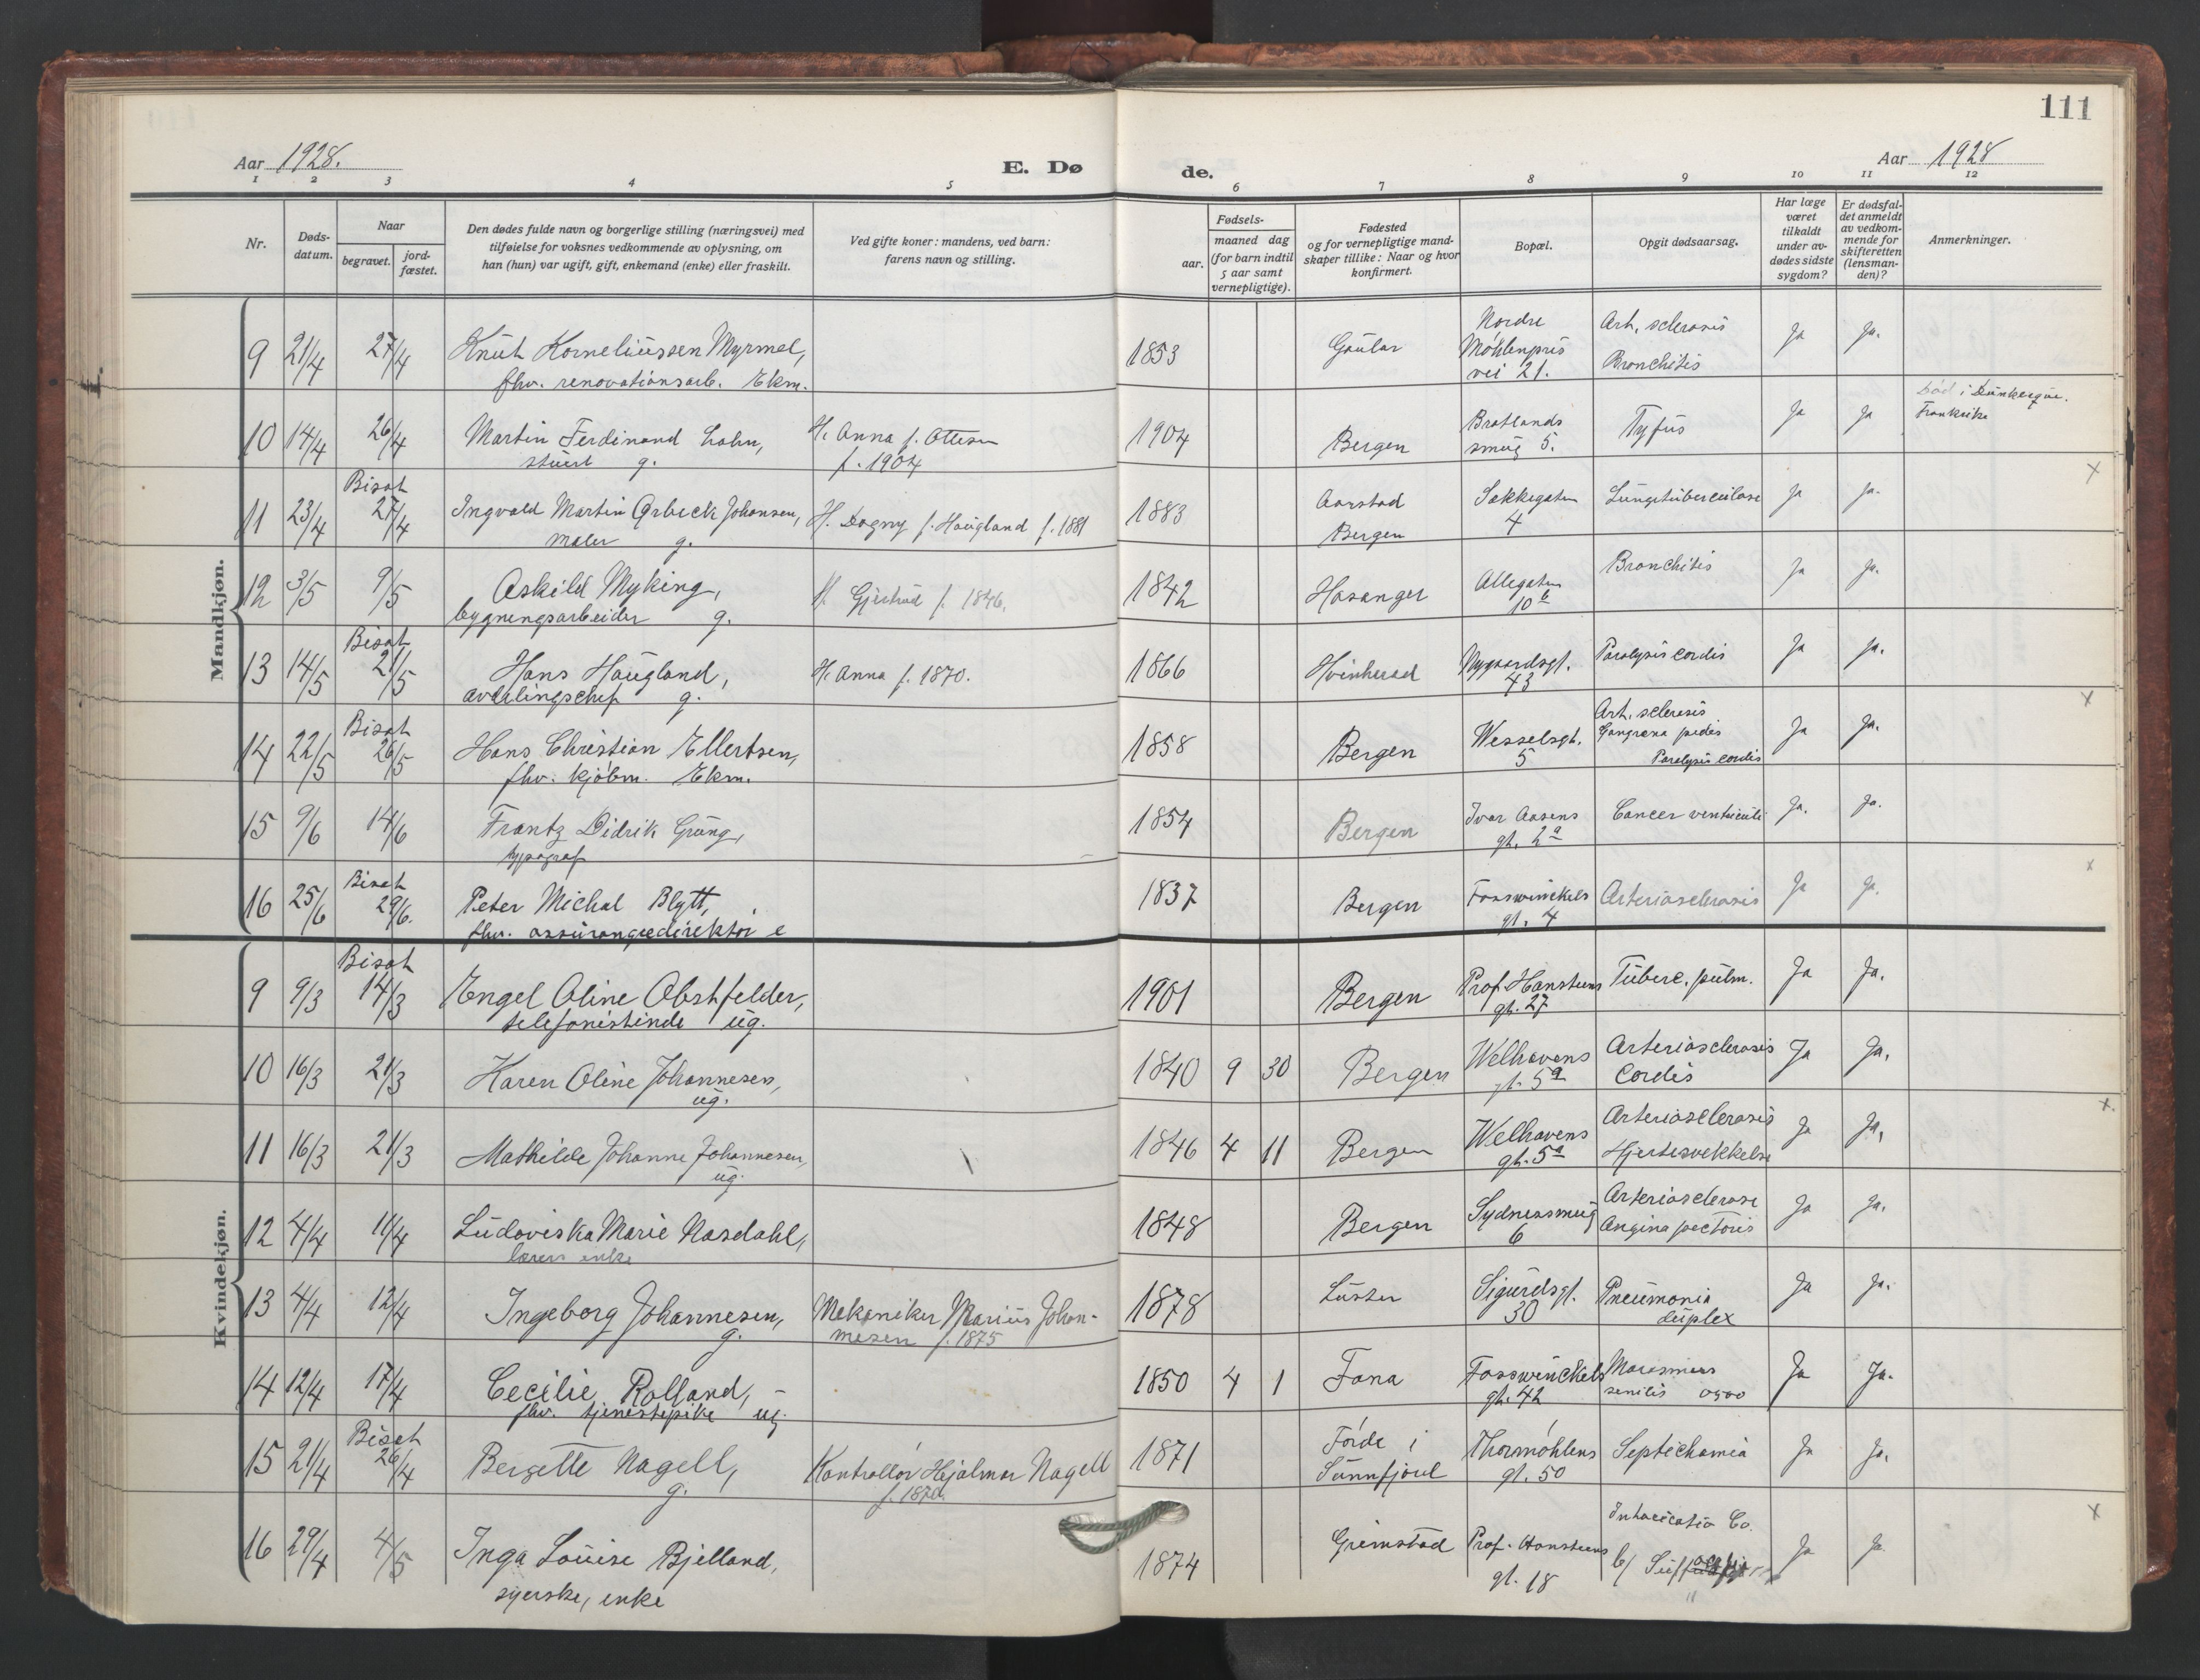 111
Aar 1928.
E. Dø
de.
Aar 1928
1 2 3 4 5 6 7 8 9 10 11 12
Nr.
Døds-
datum.
Naar
begravet.
jord-
fæstet.
Den dødes fulde navn og borgerlige stilling (næringsvei) med
tilføielse for voksnes vedkommende av oplysning, om
han (hun) var ugift, gift, enkemand (enke) eller fraskilt.
Ved gifte koner: mandens, ved barn:
farens navn og stilling.
Fødsels-
aar.
maaned dag
(for barn indtil
5 aar samt
vernepligtige).
Fødested
og for vernepligtige mand-
skaper tillike: Naar og hvor
konfirmert.
Bopæl.
Opgit dødsaarsag.
Har læge
været
tilkaldt
under av-
dødes sidste
sygdom?
Er dødsfal-
det anmeldt
av vedkom-
mende for
skifteretten
(lensman-
den)?
Anmerkninger.
Mandkjøn.
9 21/4 27/4 Knut Korneliussen Myrmel, 1853 Gaular Nordre Art. sclerosis Ja Ja.
fhv. renovationsarb. Ekm. Møhlenpris Bronchitis
vei 21.
10 14/4 26/4 Martin Ferdinand Lohn, H. Anna f. Ottesen 1904 Bergen Bratlands Tyfus Ja Ja Død i Dunkerque.
stuert g. f. 1904 smug 5. Frankrike
Bisat
11 23/4 27/4 Ingvald Martin Grbeck Johansen, H. Dagny f. Haugland f. 1881 1883 Aarstad Sakkegaten Lungetuberculose Ja Ja. x
maler g. Bergen 4
12 3/5 9/5 Askild Myking, H. Gjertrud f. 1846. 1842 Hosanger Allegaten Bronchitis Ja Ja.
bygningsarbeider g. 10 b
Bisat
13 14/5 21/5 Hans Haugland, H. Anna f. 1870. 1866 Kvinherad Nygaardsgt. Paralysis cordis Ja Ja.
avdelingschef g. 43
Bisat
14 22/5 26/5 Hans Christian Ellertsen, 1858 Bergen Wesselsgt. Art. sclerosis Ja Ja. x
fhv. kjøbm. Ekm. 5 Gangræna pedis
Paralysis cordis
15 9/6 14/6 Frantz Didrik Grung, 1854 Bergen Ivar Aasens Cancer ventriculi Ja. Ja.
typograf gt. 2a
Bisat
16 25/6 29/6. Peter Michal Blytt, 1837 Bergen Fosswinckels Arteriosclerosis Ja Ja. x
fhv. assurancedirektør e gt. 4
Kvindekjøn.
Bisat
9 9/3 14/3 Engel Oline Obstfelder, 1901 Bergen Prof. Hansteens Tuberc. pulm. Ja Ja.
telefonistinde ug. gt. 27
10 16/3 21/3 Karen Oline Johannesen, 1840 9 30 Bergen Welhavens Arteriosclerosis Ja Ja.
ug. gt. 5a Cordis
11 16/3 21/3 Mathilde Johanne Johannesen, 1846 4 11 Bergen Welhavens Arteriosclerosis Ja Ja, x
ug. gt. 5a Hjertesvekkelse
12 4/4 11/4 Ludoviska Marie Nasdahl, 1848 Bergen Sydnessmug Arteriosclerose Ja Ja.
lærers enke 6 Angina pectoris
13 4/4 12/4 Ingeborg Johannesen, Mekaniker Marius Johan- 1878 Luster Sigurdsgt. Pneumonia Ja Ja.
g. nesen f. 1875 30 duplex
14 12/4 17/4 Cecilie Rolland, 1850 4 1 Fana Fosswinckels Marasmus Ja Ja.
fhv. tjenestepike ug. gt. 42 senilis
Bisat
15 21/4 26/4 Bergette Nagell, Kontrollør Hjalmar Nagell 1871 Førde i Thormøhlens Septichæmia Ja Ja.
g. f. 1870. Sunnfjord gt. 50
16 29/4 4/5 Inga Louise Bjelland, 1874 Grimstad Prof. Hansteens Intoxicatio Co. Ja Ja x
syerske, enke gt. 18